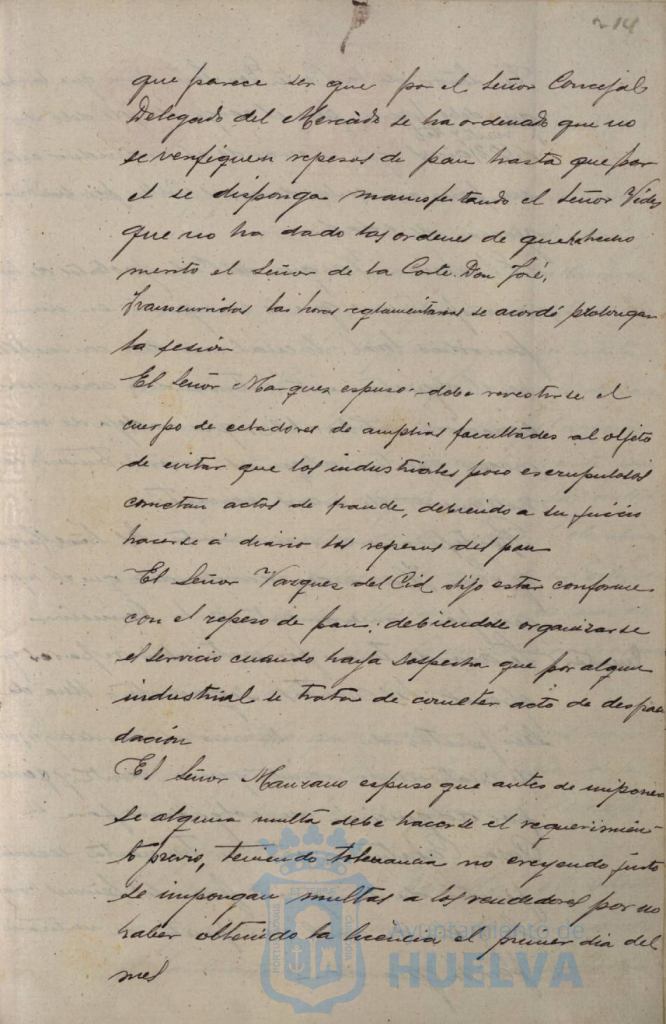 214
que parece ser que por el Señor Concejal
Delegado del Mercado se ha ordenado que no
se verifiquen repesos de pan hasta que por
el se disponga manifestando el Señor Vides
que no ha dado las ordenes de que ha hecho
merito el Señor de la Corte. Don José,
Transcurridas las horas reglamentarias se acordó prolongar
la sesión
El Señor Marquez espuso: debe revestirse el
cuerpo de celadores de amplias facultades al objeto
de evitar que los industriales poco escrupulosos
cometan actos de fraude, debiendo a su juicio
hacerse á diario los repesos del pan
El Señor Vazquez del Cid dijo estar conforme
con el repeso de pan; debiendose organizarse
el servicio cuando haya sospecha que por algun
industrial se trata de cometer acto de desfrau
dación
El Señor Manzano espuso que antes de imponer
se alguna multa debe hacerse el requerimien-
to previo, teniendo tolerancia no creyendo justo
se impongan multas a los vendedores por no
haber obtenido la licencia el primer dia del
mes
Ayuntamiento de
HUELVA